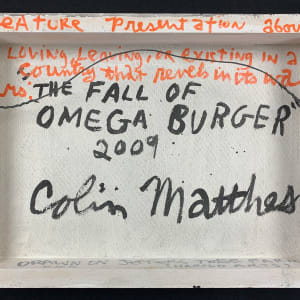 FEATURE PRESENTATION abou
LOVING, LEAVING, OR EXISTING IN a
COUNTRY that REVELS IN ITS
"THE FALL OF
OMEGA BURGER"
2009
Colin Matthes
DRAWN